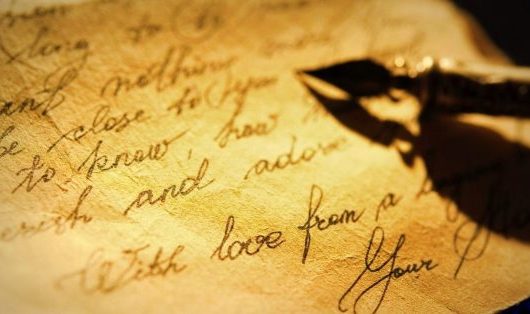 long to
and nothing
be close to you
to know, how
cherish and adore
With love from a
Your